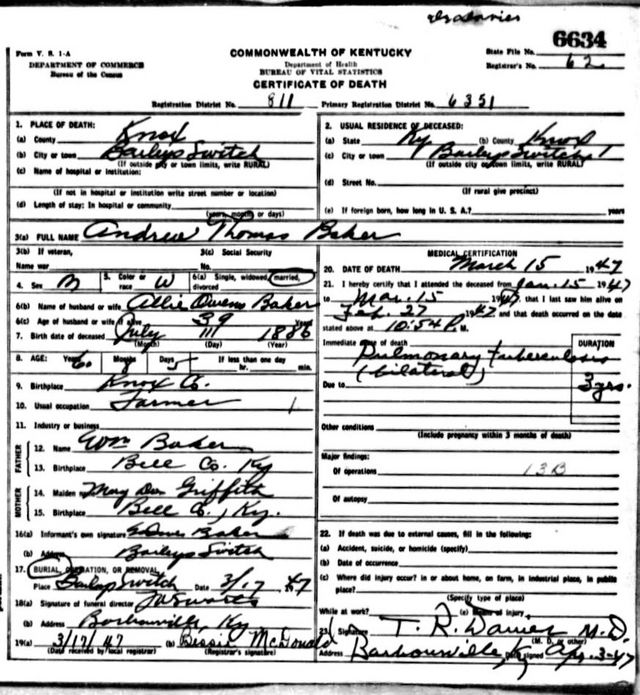 6634
Form V. S. 1-A
COMMONWEALTH OF KENTUCKY
State File No.
DEPARTMENT OF COMMERCE
Department of Health
Registrar's No. 62
Bureau of the Census
BUREAU OF VITAL STATISTICS
CERTIFICATE OF DEATH
Registration District No. 811 Primary Registration District No. 6351
1. PLACE OF DEATH:
(a) County Knox
(b) City or town Baileys Switch
(If outside city or town limits, write RURAL)
(c) Name of hospital or institution:
(If not in hospital or institution write street number or location)
(d) Length of stay: In hospital or community
(years, months or days)
2. USUAL RESIDENCE OF DECEASED:
(a) State Ky (b) County Knox
(c) City or town Baileys Switch
(If outside city or town limits, write RURAL)
(d) Street No.
(If rural give precinct)
(e) If foreign born, how long in U. S. A.? years
3(a) FULL NAME Andrew Thomas Baker
3(b) If veteran,
Name war
3(c) Social Security
No.
4. Sex M 5. Color or race W 6(a) Single, widowed, married, divorced
6(b) Name of husband or wife Allie Owens Baker
6(c) Age of husband or wife if alive 39 Years
7. Birth date of deceased July 1886
(Month) (Day) (Year)
8. AGE: Years 60 Months 8 Days 5 If less than one day
hr. min.
9. Birthplace Knox Co.
10. Usual occupation Farmer
11. Industry or business
FATHER
12. Name Wm Baker
13. Birthplace Bell Co. Ky
MOTHER
14. Maiden Mary Griffith
15. Birthplace Bell Co, Ky.
16(a) Informant's own signature Baker
(b) Address Baileys Switch
17. BURIAL, CREMATION, OR REMOVAL
Place Switch Date 3/17 1947
18(a) Signature of funeral director
(b) Address Barbourville, Ky
19(a) 3/17/47 (b) Bessie McDonald
(Date received by local registrar) (Registrar's signature)
MEDICAL CERTIFICATION
20. DATE OF DEATH March 15 1947
21. I hereby certify that I attended the deceased from Jan. 15 1947
to Mar. 15 1947, that I last saw him alive on
Feb. 27 1947 and that death occurred on the date
stated above at 10:54 P.M.
Immediate cause of death
DURATION
Pulmonary Tuberculosis
(bilateral) 3 yrs.
Due to
Other conditions
(Include pregnancy within 3 months of death)
Major findings:
Of operations 13B
Of autopsy
22. If death was due to external causes, fill in the following:
(a) Accident, suicide, or homicide (specify)
(b) Date of occurrence
(c) Where did injury occur? in or about home, on farm, in industrial place, in public
place?
(Specify type of place)
While at work? (e) Means of injury
23. Signature T. R. Davies M.D.
(M. D. or other)
Address Barbourville, Ky Date signed Apr-3-47